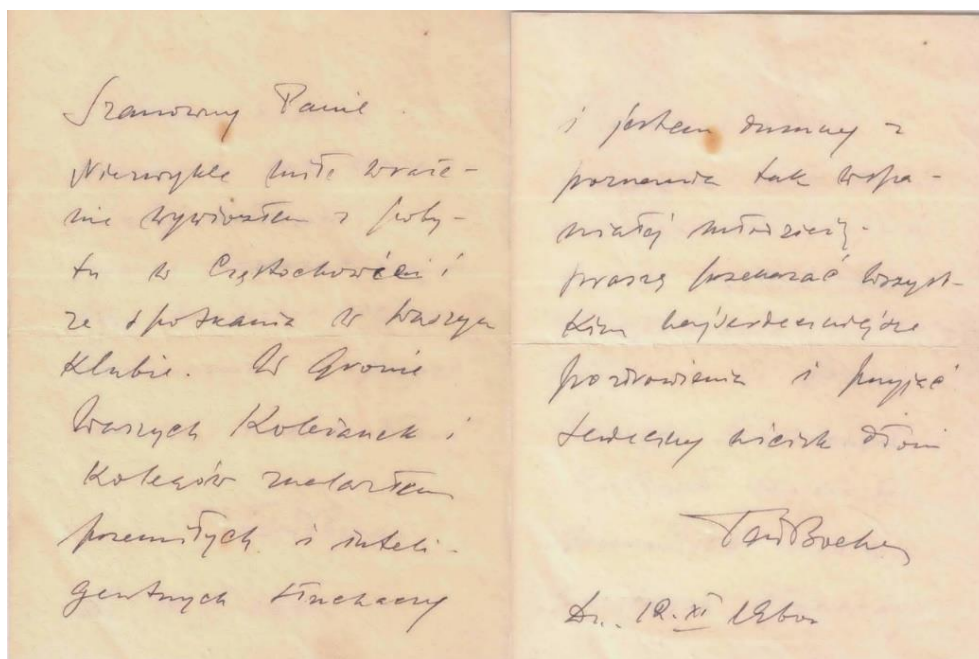 Szanowny Panie
Niezwykle miłe wraże-
nie wywiozłem z poby-
tu w Częstochowie i
ze spotkania w Waszym
Klubie. W Gronie
Waszych Koleżanek i
Kolegów znalazłem
przemiłych i inteli-
gentnych słuchaczy
i jestem dumny z
poznania tak wspa-
niałej młodzieży.
proszę przekazać wszyst-
kim najserdeczniejsze
pozdrowienia i przyjąć
serdeczny uścisk dłoni
Dn. XI